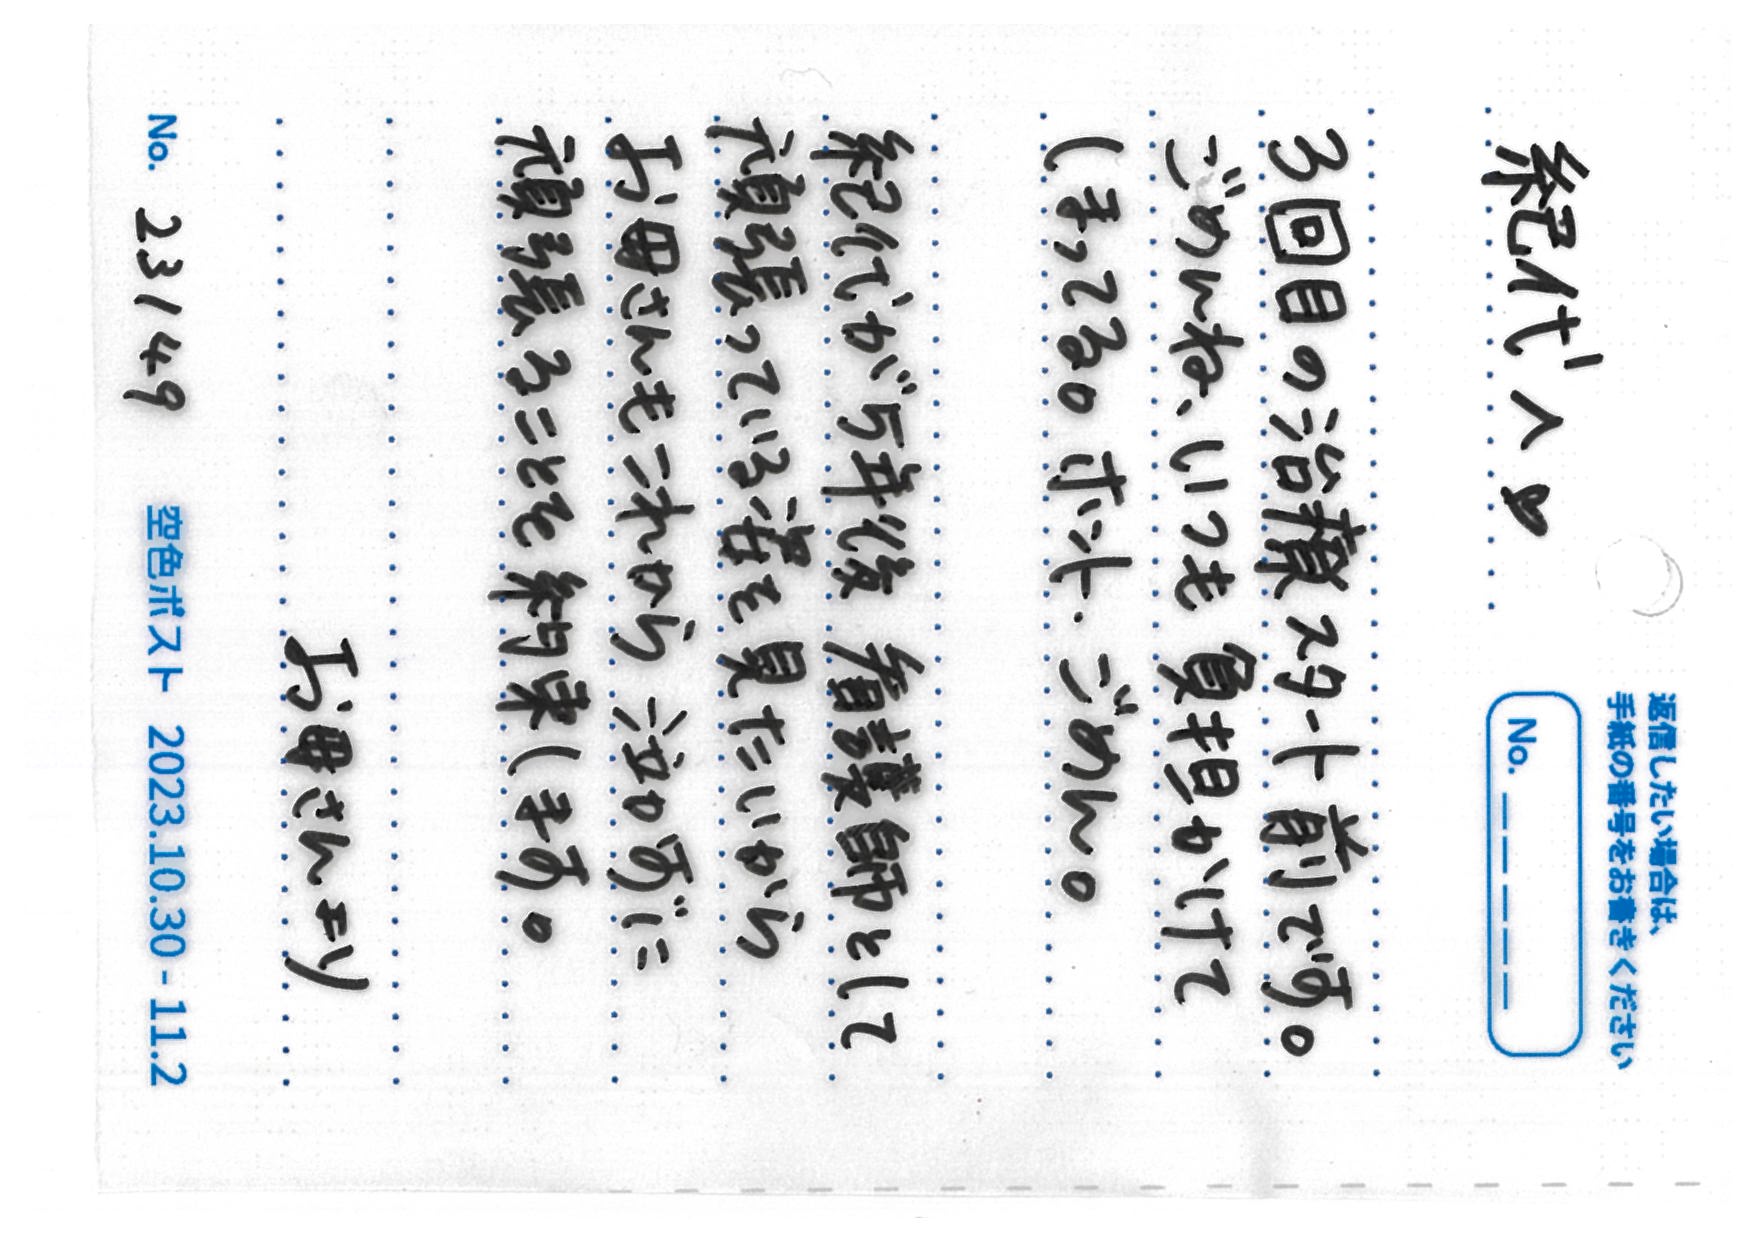 返信したい場合は、
手紙の番号をお書きください
No. _ _ _ _ _
紀代へ♥
3回目の治療スタート前です。
ごめんね、いつも負担かけて
しまってる。ホント、ごめん。
紀代が5年後 看護師として
頑張っている姿を見たいから
お母さんもこれから 泣かずに
頑張ることを約束します。
お母さんより
No. 23149
空色ポスト 2023.10.30 - 11.2